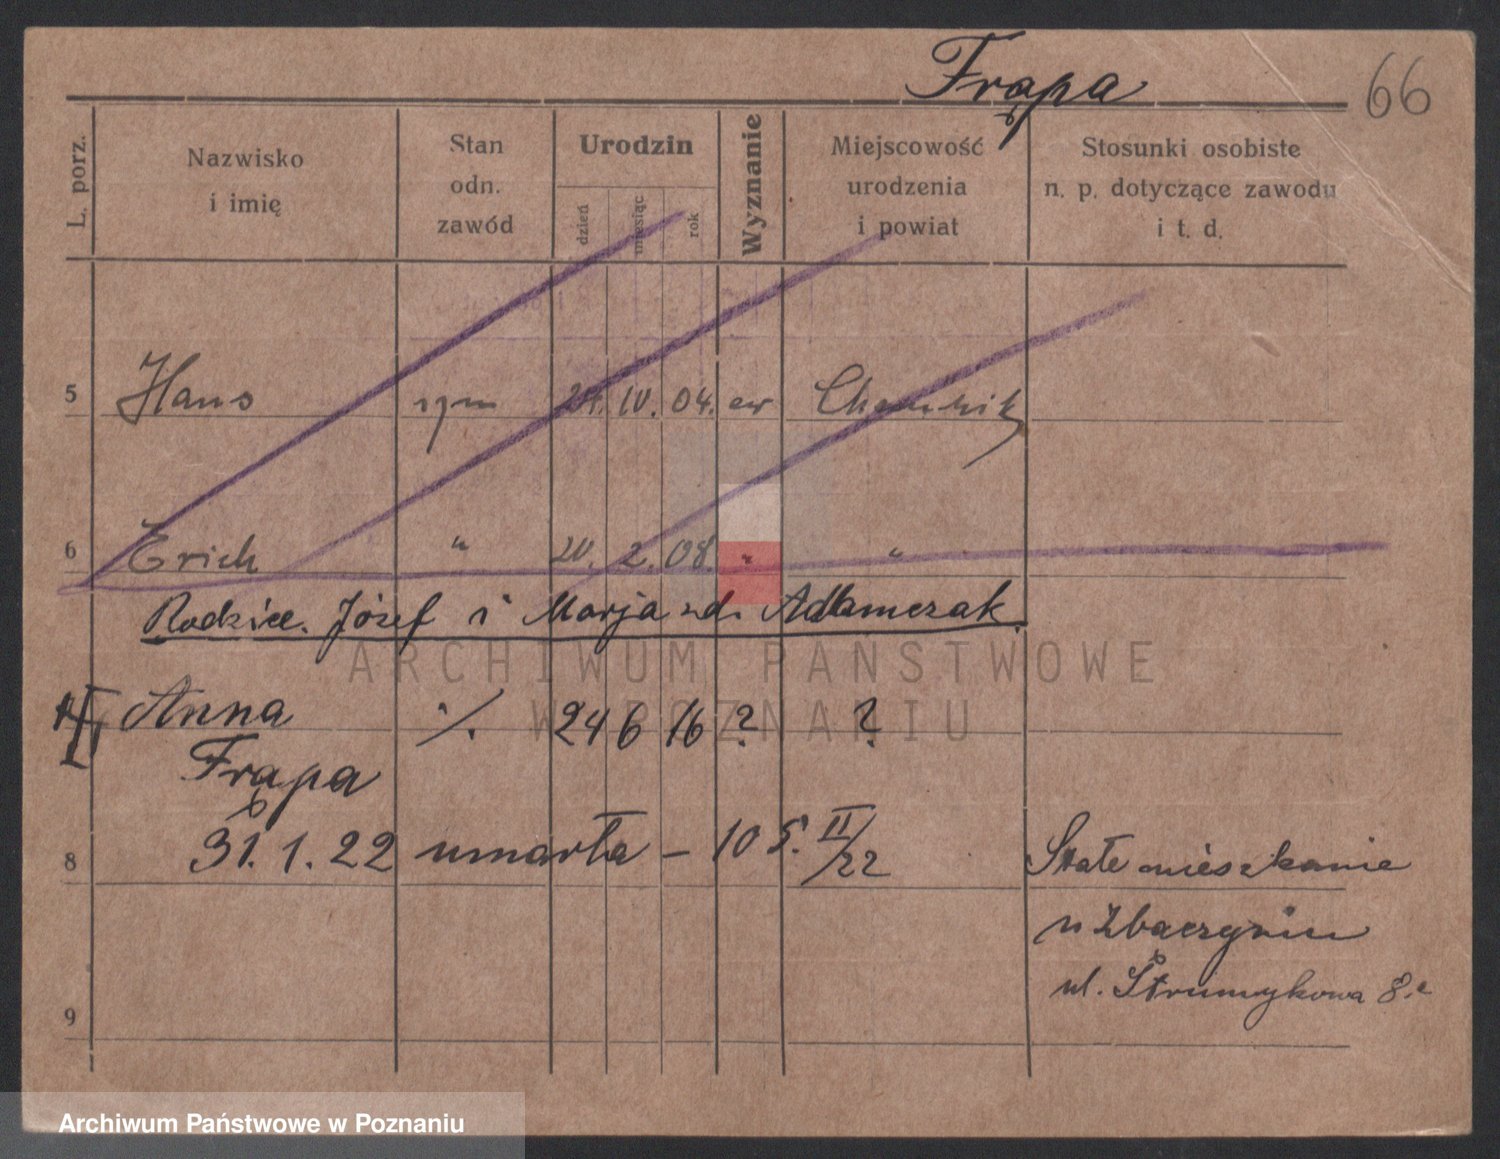 Frąpa
66
L. porz.
Nazwisko i imię
Stan odn. zawód
Urodzin
dzień miesiąc rok
Wyznanie
Miejscowość urodzenia i powiat
Stosunki osobiste n. p. dotyczące zawodu i t. d.
5 Hans syn 24. IV. 04. ew Chemnitz
6 Erich " 20. 2. 08. " "
Rodzice. Józef i Marja zd. Adamczak.
Anna ·/. 24 6 16 ? ?
Frąpa
8 31. 1. 22 umarła – 10 5. II/22 Stałe mieszkanie
w Zbaczyniu
ul. Strumykowa 8.
9
ARCHIWUM PAŃSTWOWE
W POZNANIU
Archiwum Państwowe w Poznaniu